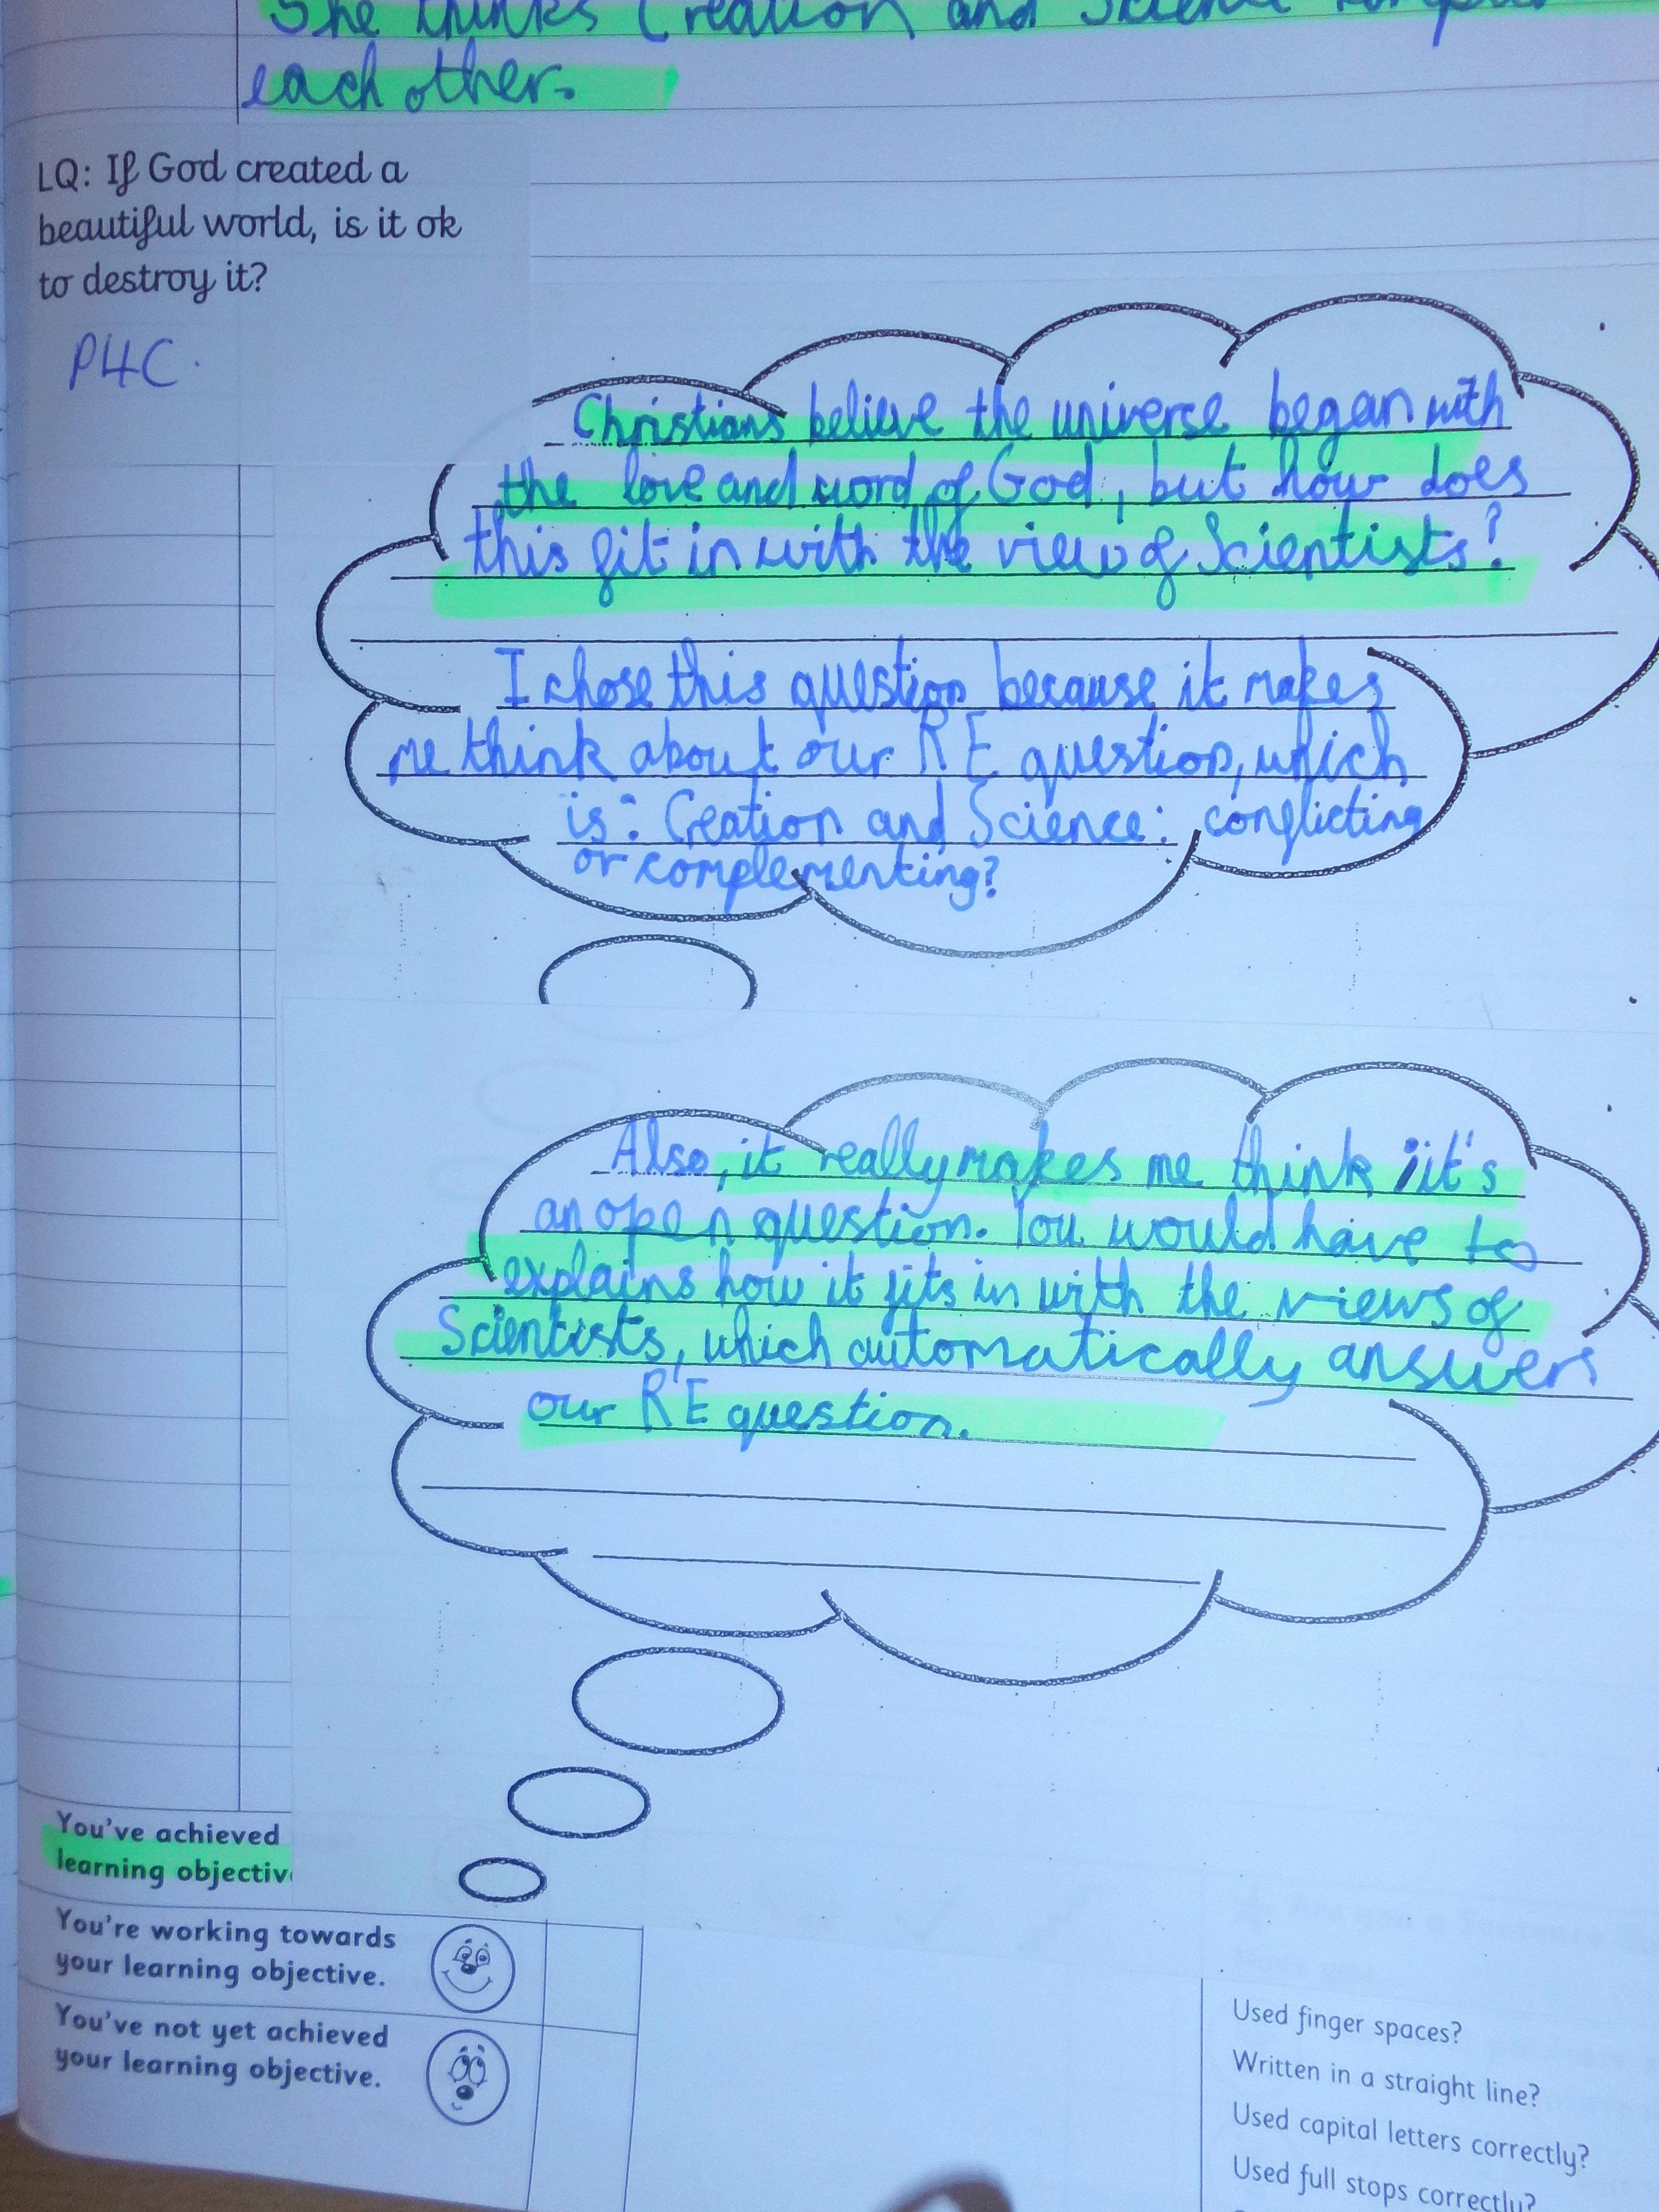 She thinks Creation and Science
each other.
LQ: If God created a
beautiful world, is it ok
to destroy it?
P4C.
Christians believe the universe began with
the love and word of God, but how does
this fit in with the view of Scientists?
I chose this question because it makes
me think about our R E question, which
is: Creation and Science: conflicting
or complementing?
Also, it really makes me think; it's
an open question. You would have to
explains how it fits in with the views of
Scientists, which automatically answers
our R E question.
You've achieved
learning objective
You're working towards
your learning objective.
You've not yet achieved
your learning objective.
Used finger spaces?
Written in a straight line?
Used capital letters correctly?
Used full stops correctly?